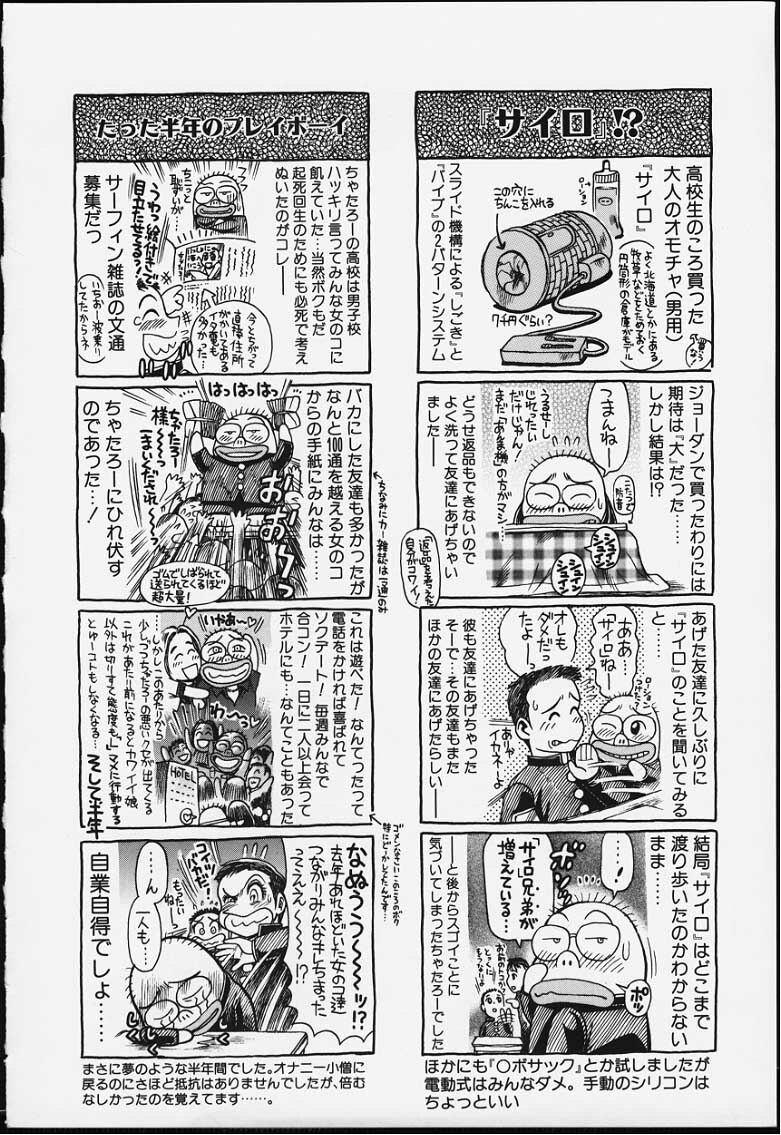 『サイロ』!?
高校生のころ買った
大人のオモチャ（男用）
『サイロ』
（よく北海道とかにある
牧草などをためておく
円筒形の倉庫がモデル
ローション
この穴に
ちんこを入れる
7千円ぐらい？
スライド機構による『しごき』と
『バイブ』の2パターンシステム
ジョーダンで買ったわりには
期待は『大』だった……
しかし結果は!?
つまんねー
うるせーし
じれったい
だけじゃん！
まだ「あんま機」の方がマシ…
こたつで
防音
どうせ返品もできないので
よく洗って友達にあげちゃい
ました――
「返品を考えた
自分がコワイ！」
あげた友達に久しぶりに
『サイロ』のことを聞いてみる
と……
ああ…
「サイロ」ね
オレも
ダメだっ
たよー
ありゃ
イカネーよ
彼も友達にあげちゃった
そーで…その友達もまた
ほかの友達にあげたらしい――
結局『サイロ』はどこまで
渡り歩いたのかわからない
まま……
…！
「サイロ兄弟が
増えている…」
ボッ
ポッ
――と後からスゴイことに
気づいてしまったちゃたろーでした
ほかにも『〇ボサック』とか試しましたが
電動式はみんなダメ。手動のシリコンは
ちょっといい
たった半年のプレイボーイ
ちゃたろーの高校は男子校
ハッキリ言ってみんな女のコに
飢えていた…当然ボクもだ
起死回生のためにも必死で考え
ぬいたのがコレ――
ちこっと
恥ずいが…
うわっ絵付きで
目立たせてるっ！
今とちがって
直接住所
がかいてある
イタ電も
多かった…
サーフィン雑誌の文通
募集だっ
いちおー波乗り
してたからネ
はっはっはっ
ちゃたろー
様〜〜〜っ
一まいくだされ〜〜っ
おお〜〜っ
ゴムでしばられて
送られてくるほど
超大量！
バカにした友達も多かったが
なんと100通を越える女のコ
からの手紙にみんなは……
ちゃたろーにひれ伏す
のであった…！
ちなみにカー雑誌は「2通」のみ
これは遊べた！なんてったって
電話をかければ喜ばれて
ソクデート！毎週みんなで
合コン！一日に二人以上会って
ホテルにも…なんてこともあった
いやあ〜
わ〜っ
HOTEL
しかしこのあたりから
少しっつちゃたろーの悪いクセが出てくる
これがあたり前になるとカワイイ娘
以外は切りすて態度も。マメに行動する
とゆーコトもしなくなる…
そして半年
ゴメンなさいこのころのボク
特にどーかしてったんです…
なぬうう〜〜〜ッ!?
去年あれほどいた女のコ達
つながりみんなキレちまった
ってええぇ〜〜〜!?
コイツ
バカだ…
もったい
ねぇ
……ん
一人も…
自業自得でしょ……
まさに夢のような半年間でした。オナニー小僧に
戻るのにさほど抵抗はありませんでしたが、倍む
なしかったのを覚えてます……。